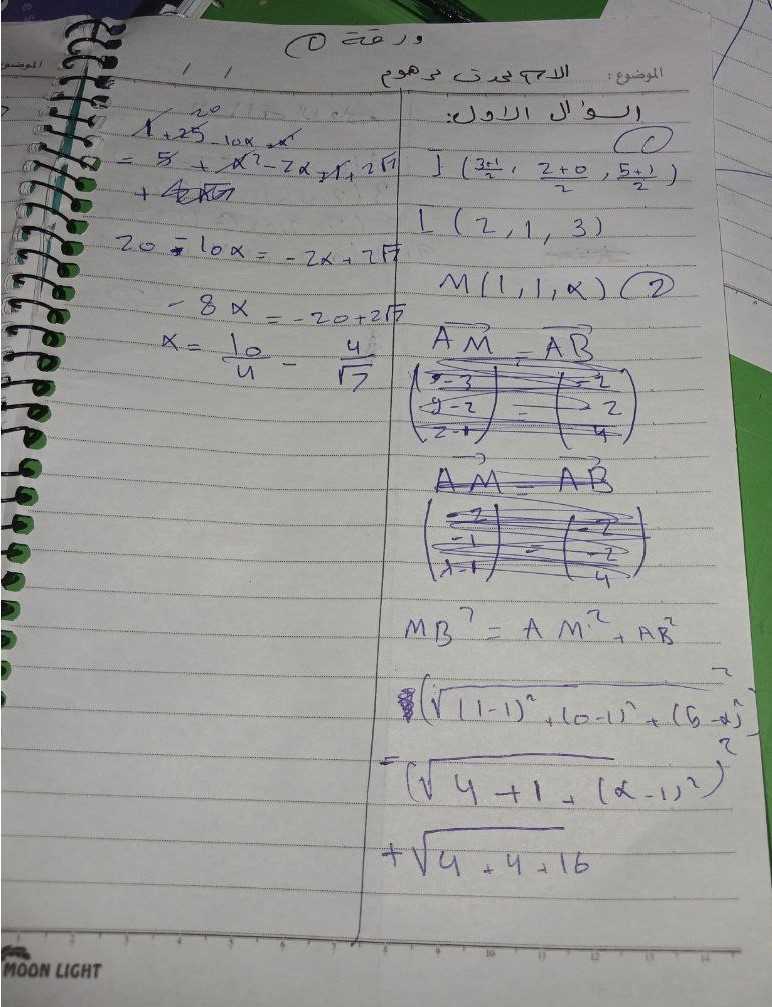 ورقة ①
الموضوع:
السؤال الاول:
①
I (3+1/2 , 2+0/2 , 5+1/2)
I (2, 1, 3)
M(1, 1, α) ②
AM = AB
MB² = AM² + AB²
(√(1-1)² + (0-1)² + (5-α)²)²
= (√4 + 1 + (α-1)²)²
+ √4 + 4 + 16
20
1 + 25 - 10α + α²
= 5 + α² - 2α + 1 + 2√7
20 - 10α = -2α + 2√7
-8α = -20 + 2√7
α = 10/4 - 4/√7
MOON LIGHT